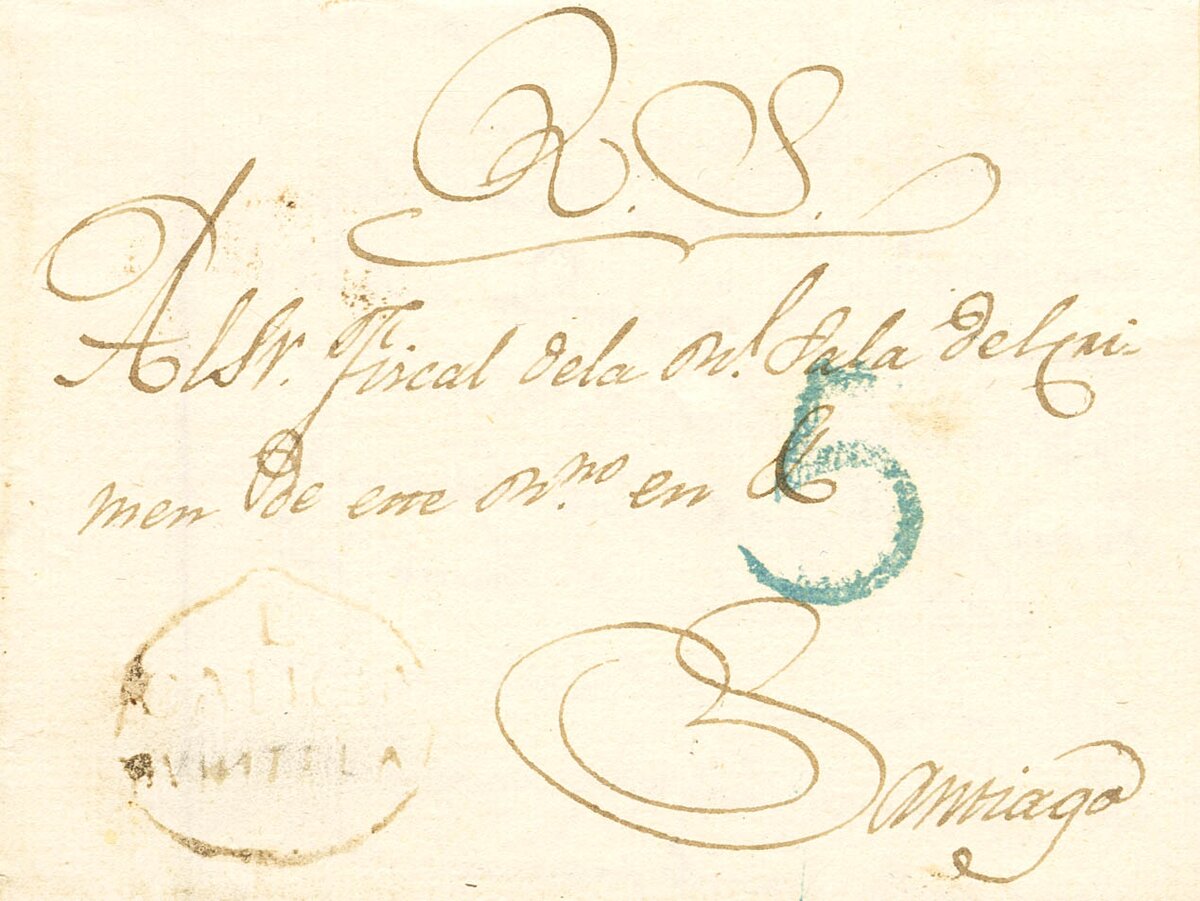 R. S.
Al Sr. Fiscal dela Rl. Sala del cri-
men de este Rno. en
5
Santiago
L
GALICIA